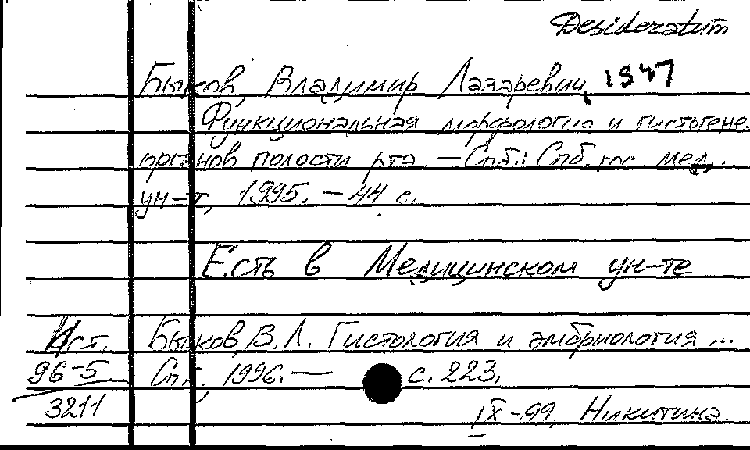 Desideratum
Быков, Владимир Лазаревич, 1947
Функциональная морфология и гистогене
органов полости рта. — Спб.: Спб. гос. мед.
ун-т, 1995. — 44 с.
Есть в Медицинском ун-те
Ист. Быков, В.Л. Гистология и эмбриология ...
96-5 Спб., 1996. — с. 223.
3211 IX-99, Никитина